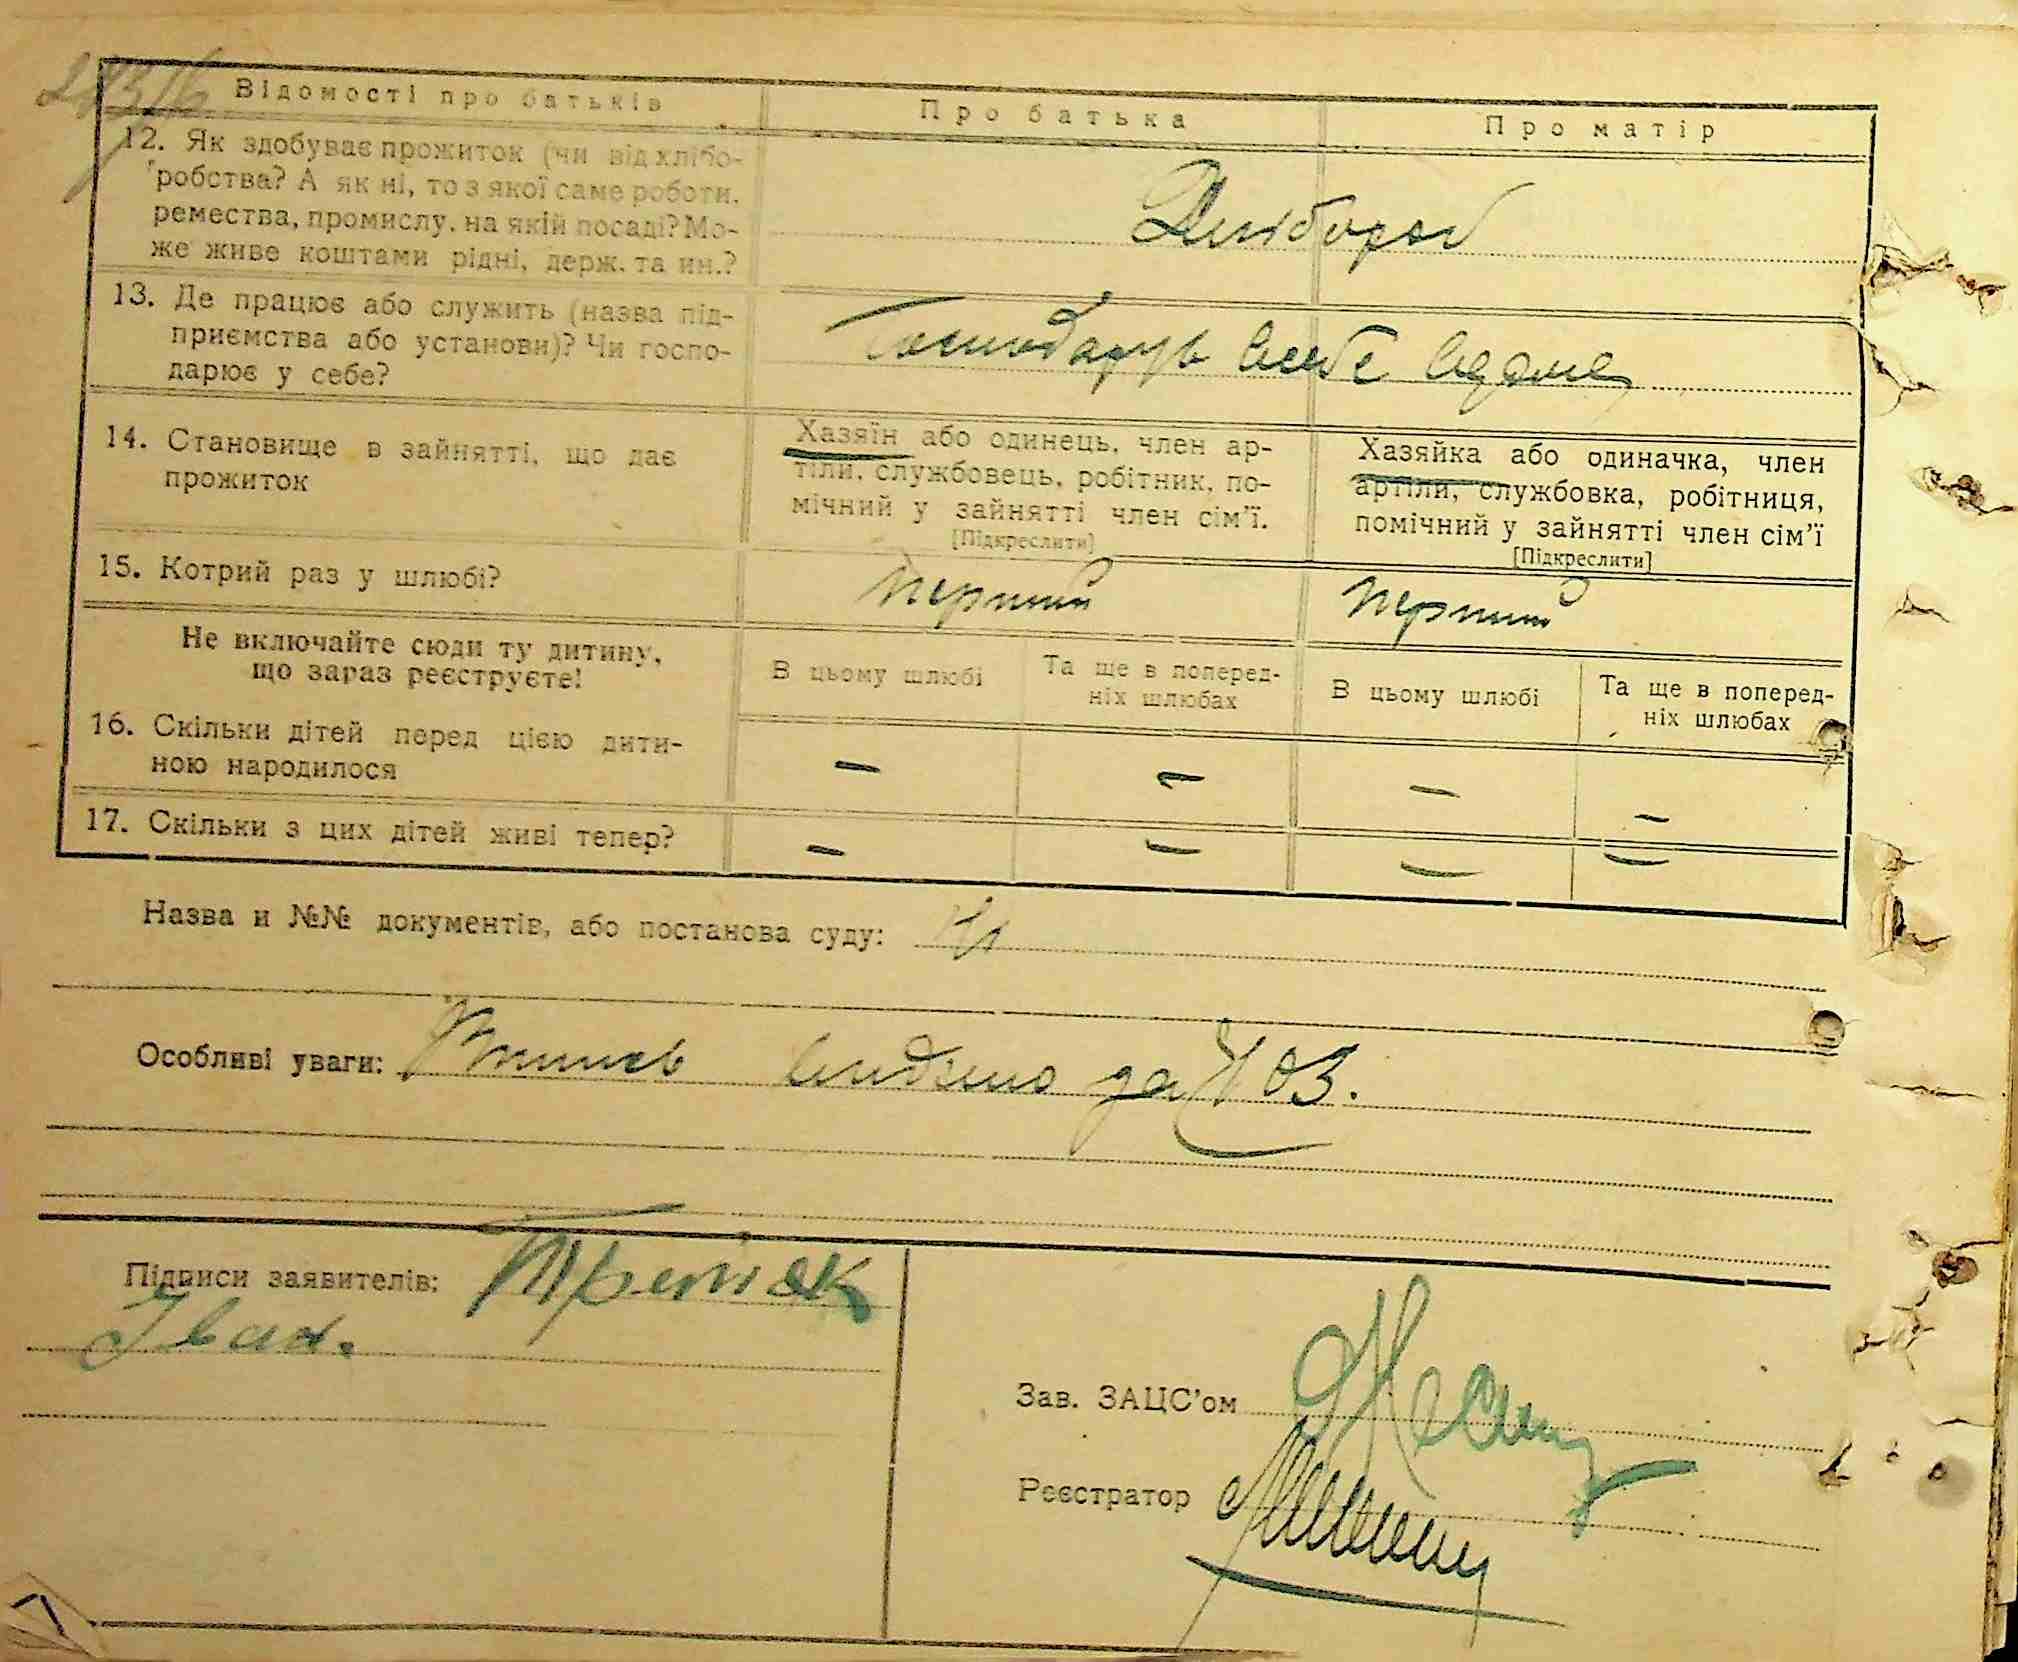 Відомості про батьків
Про батька
Про матір
12. Як здобуває прожиток (чи від хлібо-
робства? А як ні, то з якої саме роботи,
ремества, промислу, на якій посаді? Мо-
же живе коштами рідні, держ. та ин.?
Хлібороб
13. Де працює або служить (назва під-
приємства або установи)? Чи госпо-
дарює у себе?
Господарує в себе вдома
14. Становище в зайнятті, що дає
прожиток
Хазяїн або одинець, член ар-
тіли, службовець, робітник, по-
мічний у зайнятті член сім'ї.
[Підкреслити]
Хазяйка або одиначка, член
артіли, службовка, робітниця,
помічний у зайнятті член сім'ї
[Підкреслити]
15. Котрий раз у шлюбі?
перший
перший
Не включайте сюди ту дитину,
що зараз реєструєте!
В цьому шлюбі
Та ще в поперед-
ніх шлюбах
В цьому шлюбі
Та ще в поперед-
ніх шлюбах
16. Скільки дітей перед цією дити-
ною народилося
– – – –
17. Скільки з цих дітей живі тепер?
– – – –
Назва и №№ документів, або постанова суду:
Особливі уваги: Випись видано за № 03.
Підписи заявителів: Третяк
Іван.
Зав. ЗАЦС'ом
Реєстратор